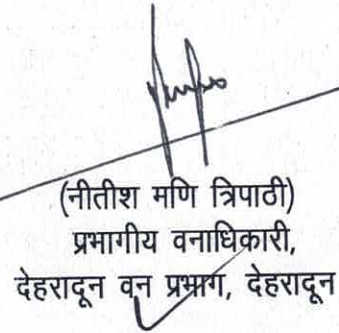 (नीतीश मणि त्रिपाठी)
प्रभागीय वनाधिकारी,
देहरादून वन प्रभाग, देहरादून